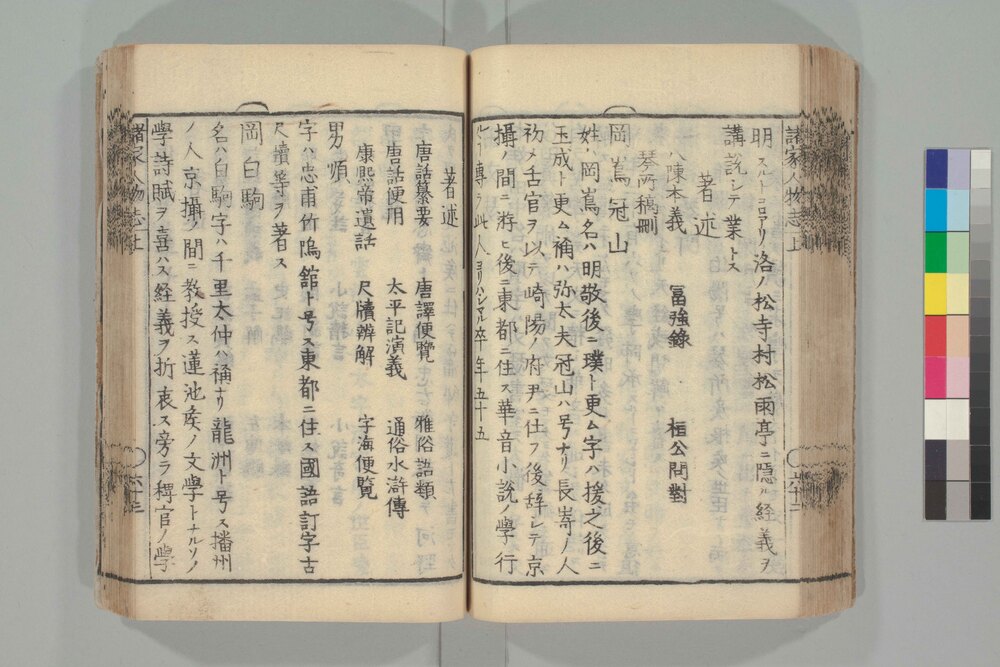 諸家人物志上
明スルトコロアリ洛ノ松寺村松雨亭ニ隠ル経義ヲ
講説シテ業トス
著述
八陳本義 冨強録 桓公問對
琴所稿刪
岡嶌冠山
姓ハ岡嶌名ハ明敬後ニ璞ト更ム字ハ援之後ニ
玉成ト更ム稱ハ弥太夫冠山ハ号ナリ長嵜ノ人
初メ舌官ヲ以テ崎陽ノ府尹ニ仕フ後辞レテ京
攝ノ間ニ游ヒ後ニ東都ニ住ス華音小説ノ學行
ルヽ傳ラ此人ヨリハシマル卒年五十五
六十二
著述
唐話纂要 唐譯便覽 雅俗語類
唐話便用 太平記演義 通俗水滸傳
康熙帝遺話 尺牘辨解 字海便覽
男順
字ハ忠甫竹隖舘ト号ス東都ニ住ス國語訂字古
尺牘等ヲ著ス
岡白駒
名ハ白駒字ハ千里太仲ハ稱ナリ龍洲ト号ス播州
ノ人京攝ノ間ニ教授ス蓮池矦ノ文學トナルソノ
學詩賦ヲ喜ハス経義ヲ折衷ス旁ラ稗官ノ學
諸家人物志上
六十三